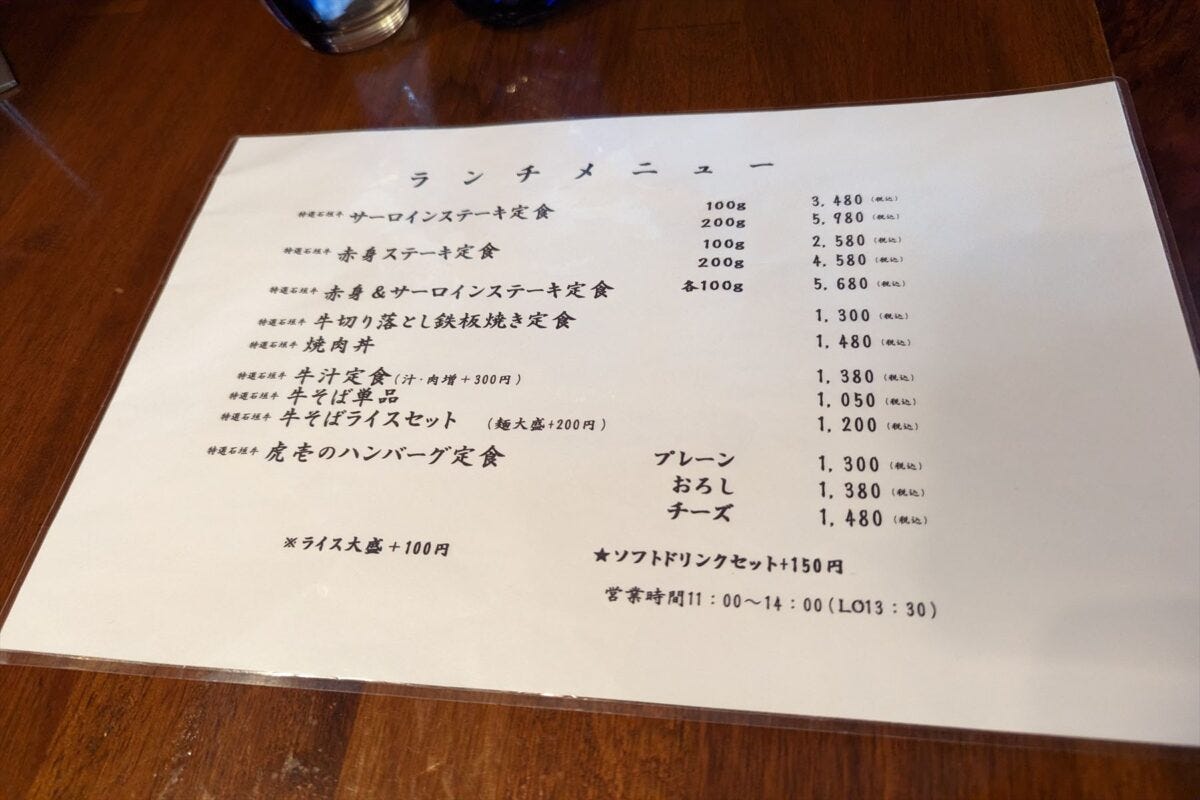 ランチメニュー
特選石垣牛 サーロインステーキ定食 100g 3,480 (税込)
200g 5,980 (税込)
特選石垣牛 赤身ステーキ定食 100g 2,580 (税込)
200g 4,580 (税込)
特選石垣牛 赤身&サーロインステーキ定食 各100g 5,680 (税込)
特選石垣牛 牛切り落とし鉄板焼き定食 1,300 (税込)
特選石垣牛 焼肉丼 1,480 (税込)
特選石垣牛 牛汁定食(汁・肉増+300円) 1,380 (税込)
特選石垣牛 牛そば単品 1,050 (税込)
特選石垣牛 牛そばライスセット (麺大盛+200円) 1,200 (税込)
特選石垣牛 虎壱のハンバーグ定食 プレーン 1,300 (税込)
おろし 1,380 (税込)
チーズ 1,480 (税込)
※ライス大盛+100円
★ソフトドリンクセット+150円
営業時間11:00～14:00(LO13:30)